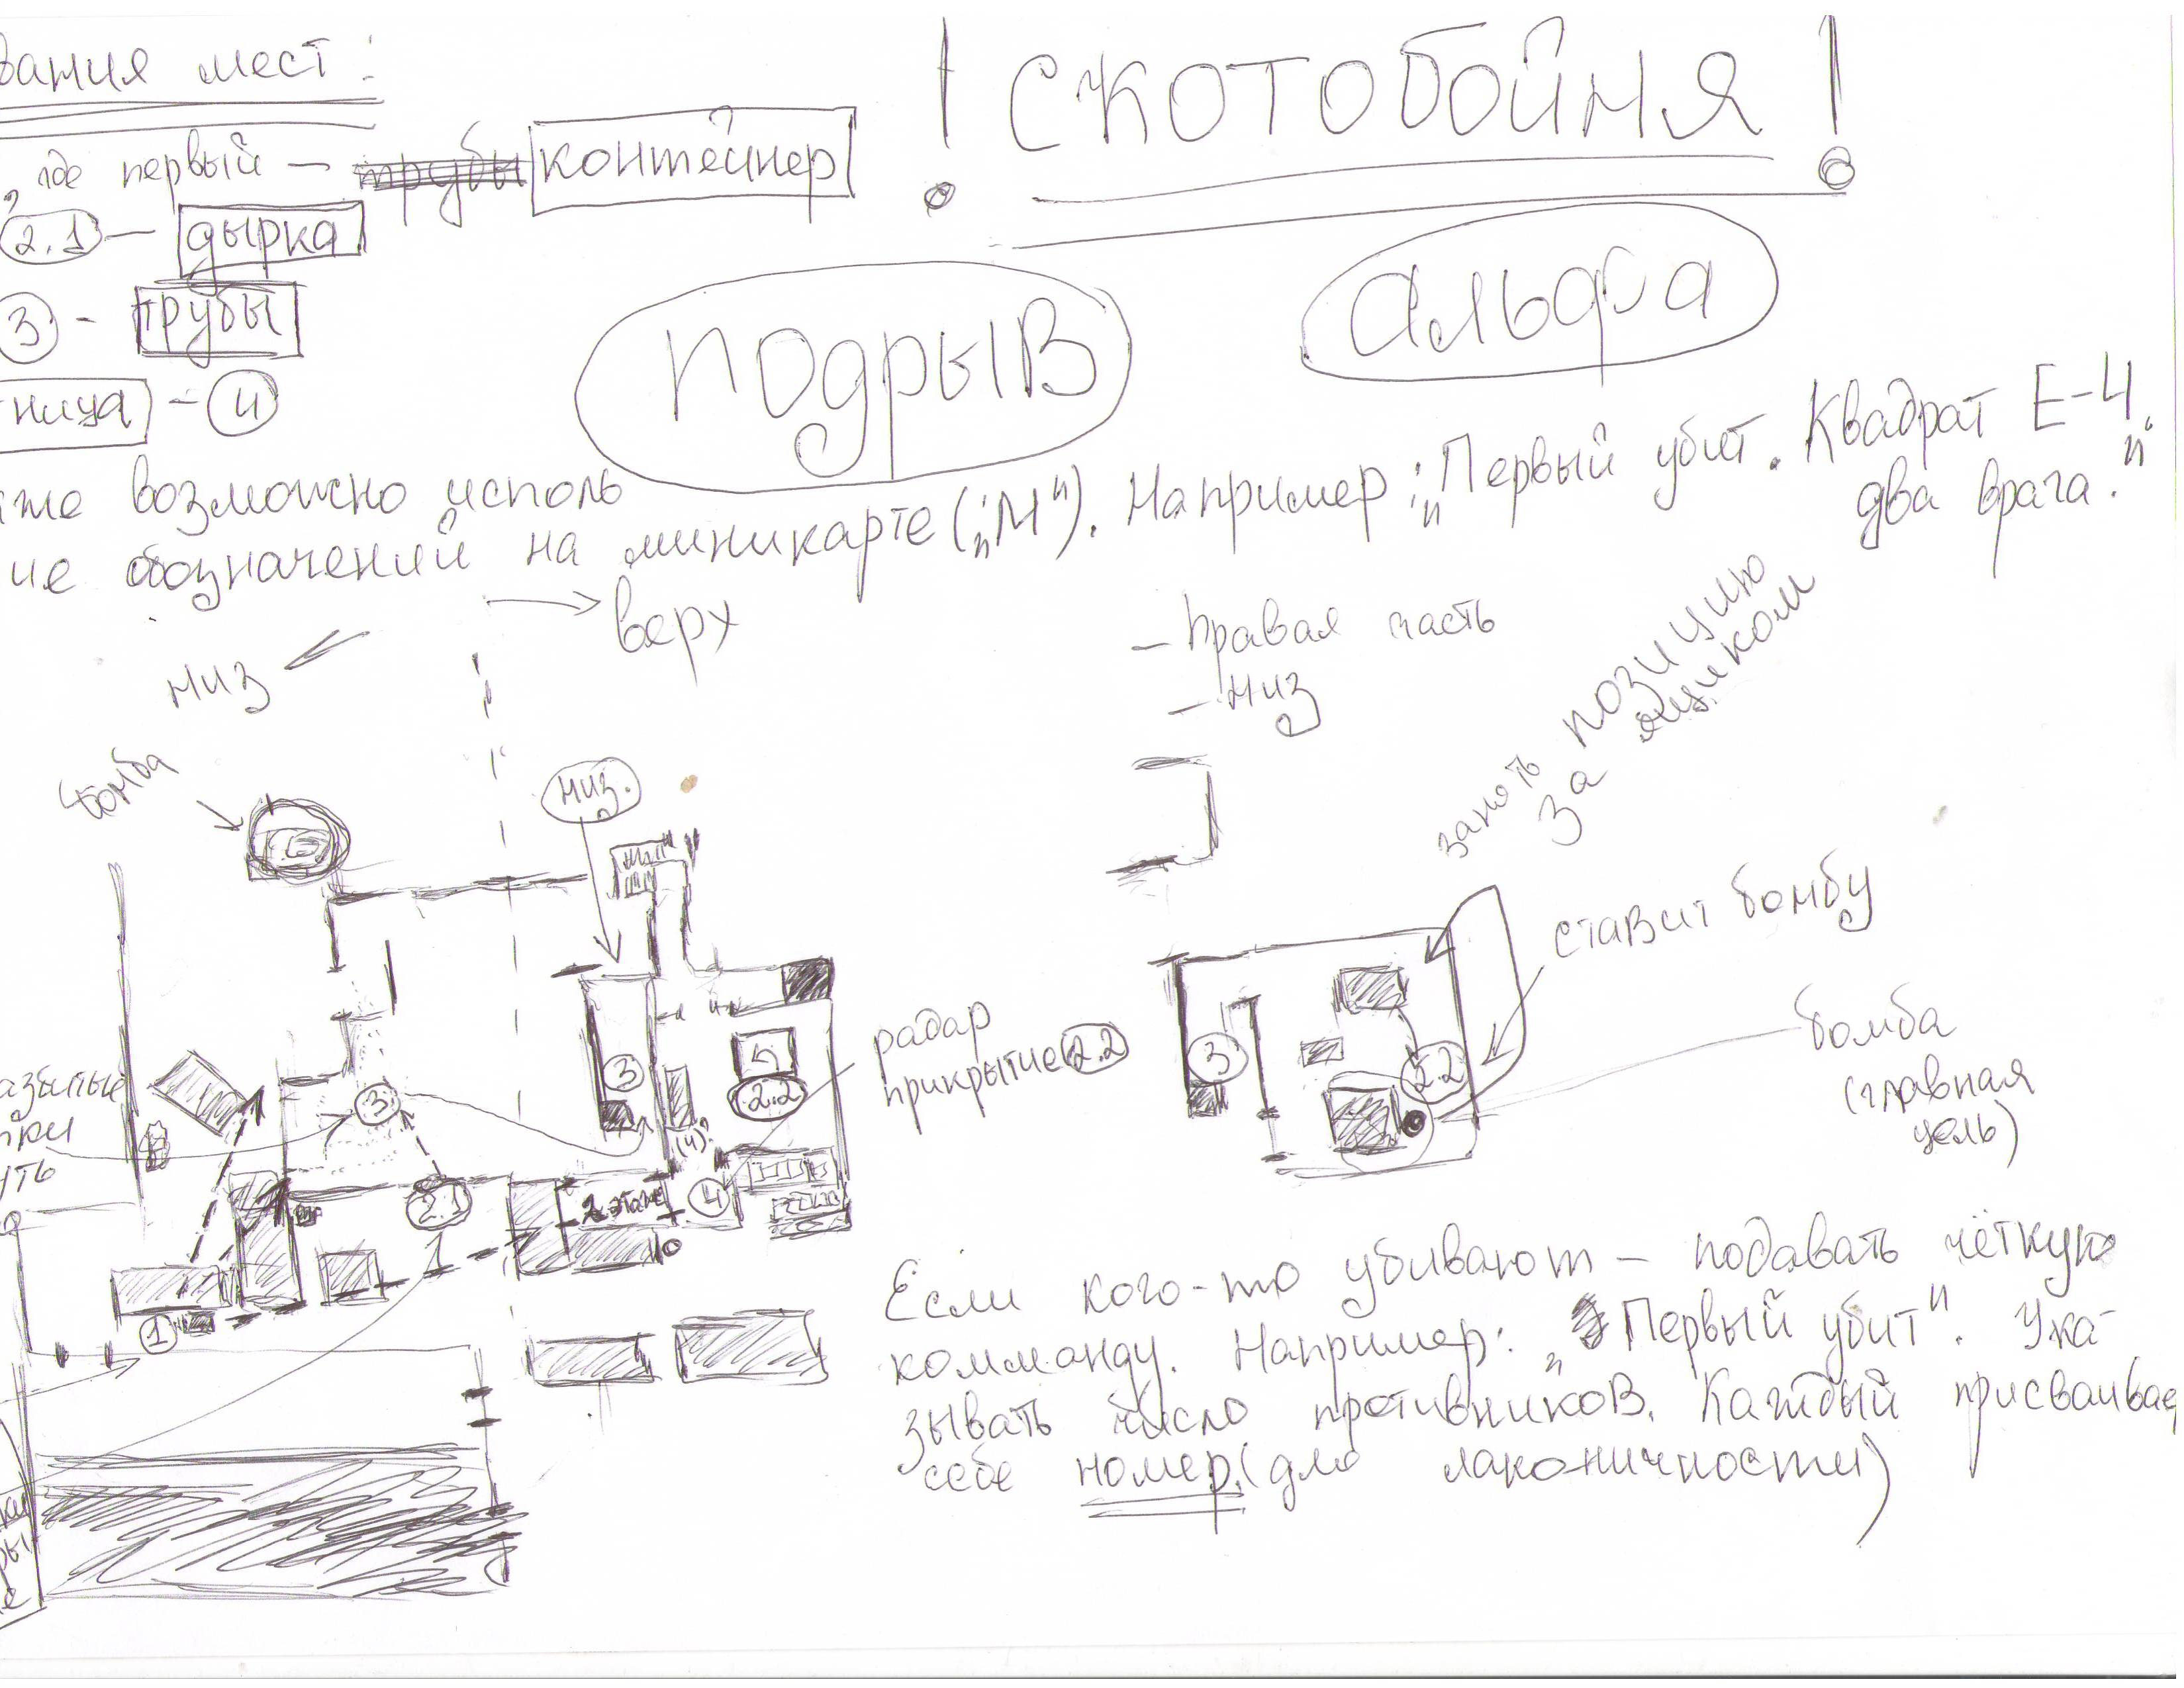 ! СКОТОБОЙНЯ !
вания мест:
, где первый - трубы контейнер
2.1 - дырка
3 - трубы
ница - 4
Подрыв
Альфа
же возможно исполь
ие обозначений на миникарте („М“). Например: „Первый убит. Квадрат Е-4.
два врага.“
низ
верх
- Правая часть
- низ
занять позицию
за ящиком
бомба
низ.
Б
3
3
2.2
(4)
4
2.1
2 этаж
1
радар
прикрытие 2.2
3
2.2
ставит бомбу
бомба
(главная
цель)
Если кого-то убивают - подавать чёткую
комманду. Например: „Первый убит“. Ука-
зывать число противников. Каждый присваивае
себе номер. (для лаконичности)